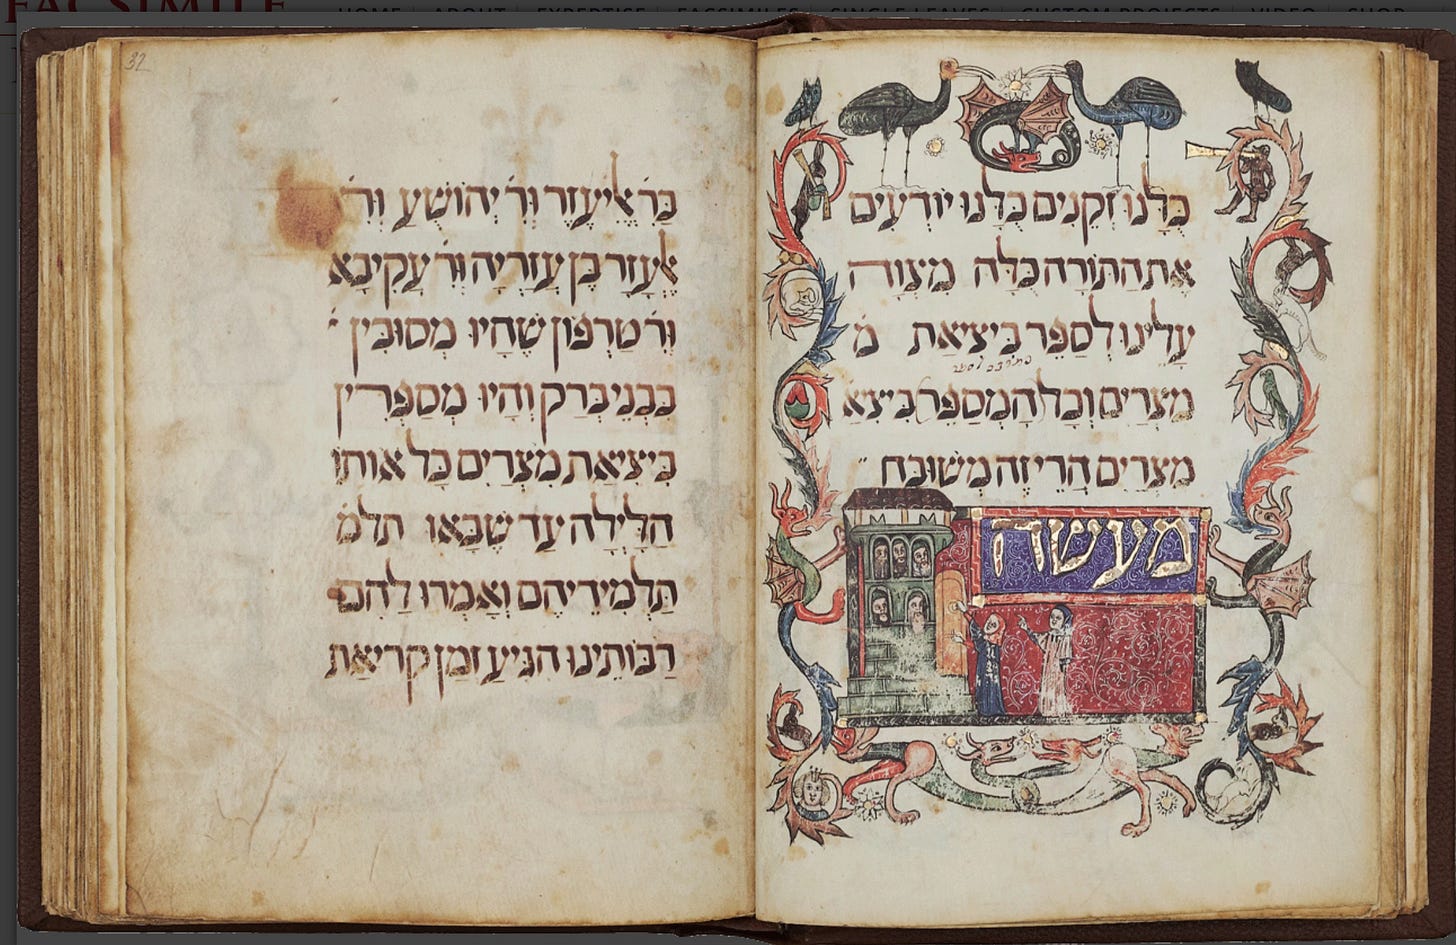 FACSIMILE
HOME ABOUT EXPERTISE FACSIMILES SINGLE LEAVES CUSTOM PROJECTS VIDEO SHOP
כלנו זקנים כלנו יודעים
את התורה כלה מצוה
עלינו לספר ביציאת מ
מצרים וכל המספר ביצא
מצרים הרי זה משובח
מעשה
32
בר׳ אליעזר ור׳ יהושע ור׳
אלעזר בן עזריה ור׳ עקיבא
ור׳ טרפון שהיו מסובין
בבני ברק והיו מספרין
ביציאת מצרים כל אותו
הלילה עד שבאו תלמ
תלמידיהם ואמרו להם
רבותינו הגיע זמן קריאת